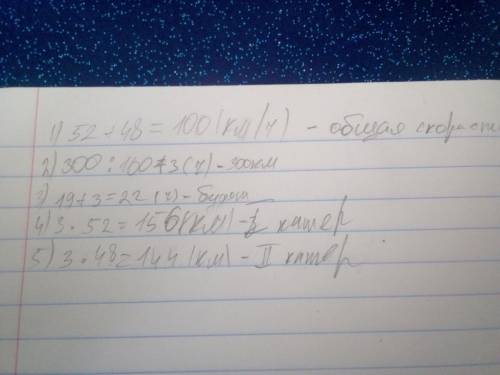 1) 52 + 48 = 100 (км/ч) - общая скорость
2) 300 : 100 = 3 (ч) - 300км
3) 19 + 3 = 22 (ч) -
4) 3 · 52 = 156 (км) - катер
5) 3 · 48 = 144 (км) - II катер